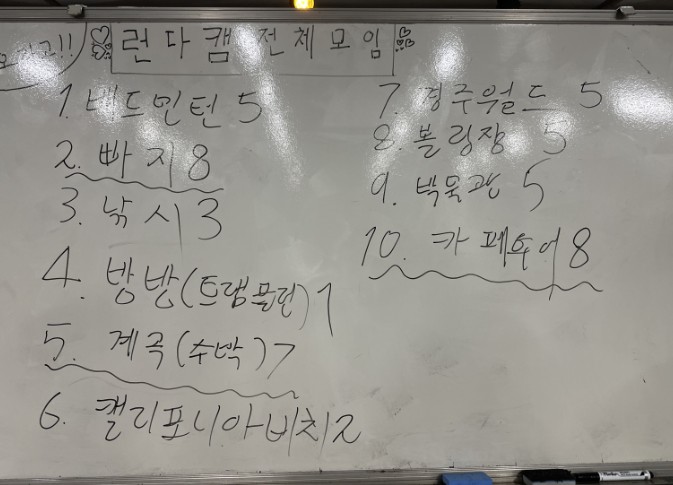 런다캠 전체모임
1. 배드민턴 5
2. 빠지 8
3. 낚시 3
4. 방방(트램플린) 1
5. 계곡(수박) 7
6. 캘리포니아비치 2
7. 경주월드 5
8. 볼링장 5
9. 박물관 5
10. 카페투어 8